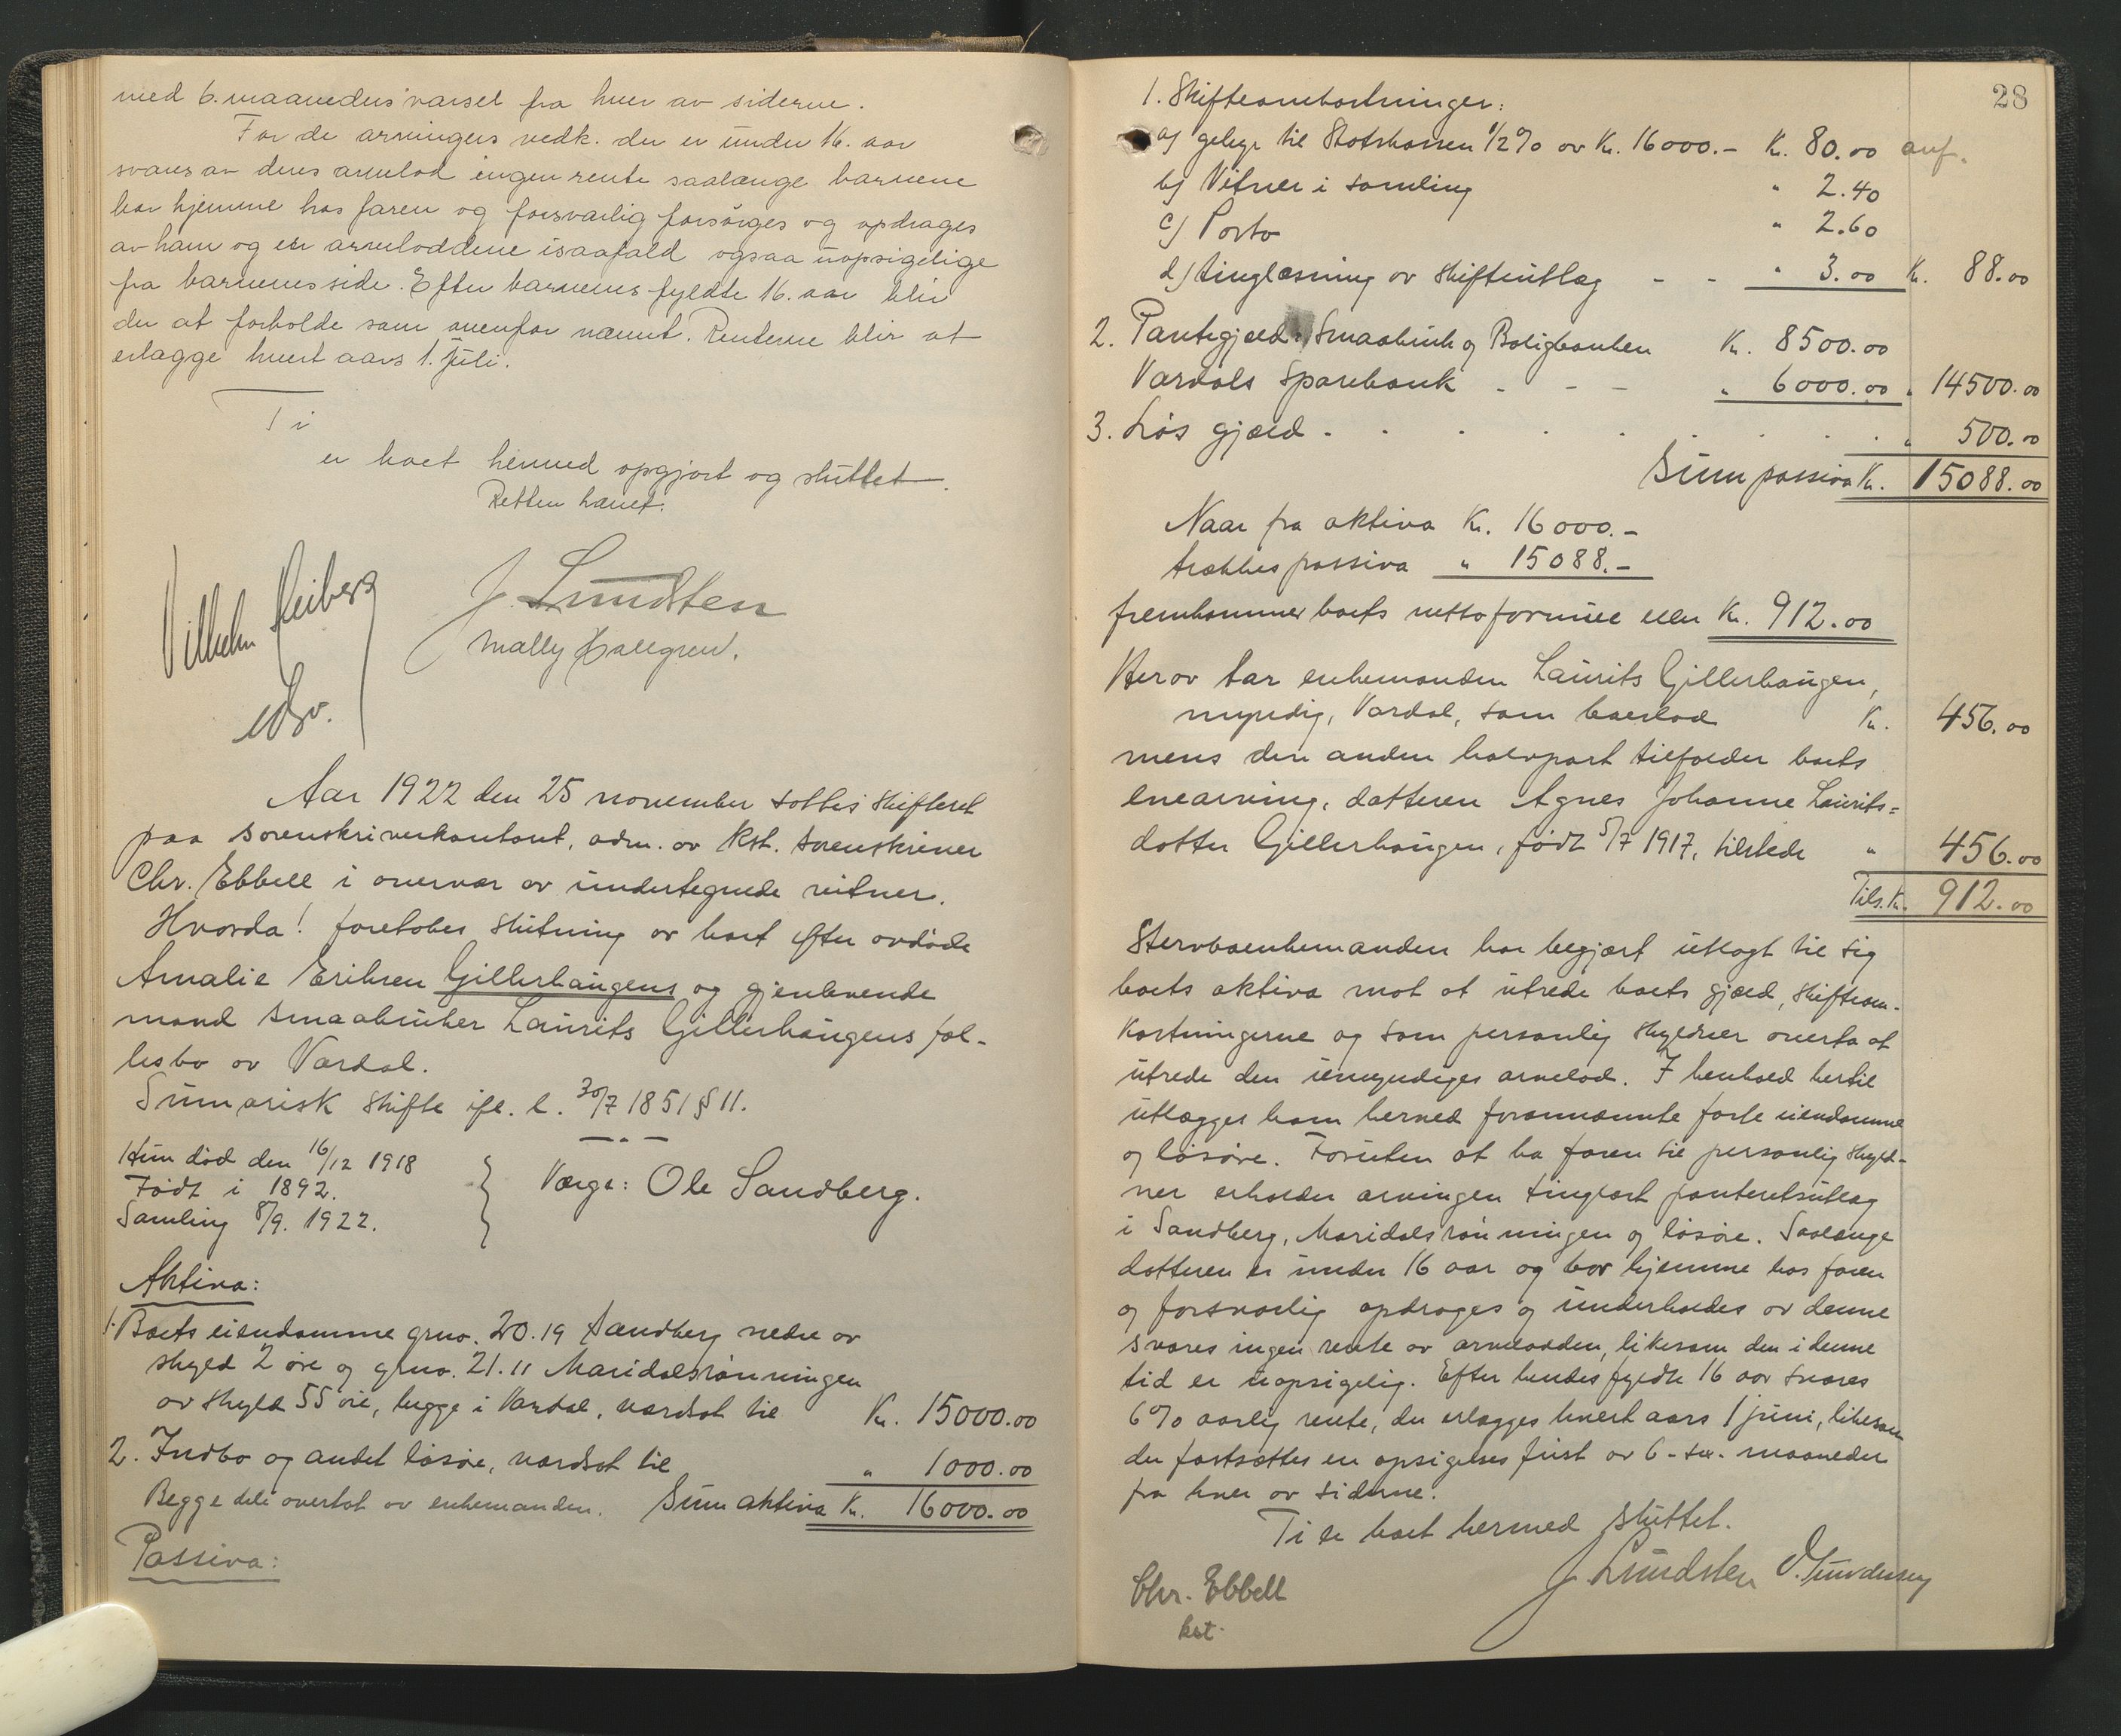 med 6. maaneders varsel fra hver av siderne.
For de arvingers vedk. der er under 16. aar
svares av deres arvelod ingen rente saalænge barnene
bor hjemme hos faren og forsvarlig forsörges og opdrages
av ham og er arveloddene isaafald ogsaa uopsigelige
fra barnenes side. Efter barnenes fyldte 16. aar blir
der at forholde som ovenfor nævnt. Renterne blir at
erlægge hvert aars 1. juli.
Ti
er boet hermed opgjort og sluttet.
Retten hævet.
Vilhelm Heiberg
J. Lundsten
Mally Hallgren.
edsv.
Aar 1922 den 25 november sattes skifteret
paa sorenskriverkontoret, adm. av kst. sorenskriver
Chr. Ebbell i overvær av undertegnede vitner.
Hvorda! foretokes slutning av boet efter avdöde
Amalie Eriksen Gillerhaugens og gjenlevende
mand smaabruker Laurits Gillerhaugens fæl-
lesbo av Vardal.
Sumarisk skifte ifl. l. 30/7 1851 § 11.
Hun död den 16/12 1918
Födt i 1892.
Samling 8/9. 1922.
Værge: Ole Sandberg.
Aktiva:
1. Boets eiendomme grno. 20.19 Sandberg nedre av
skyld 2 öre og grno. 21.11 Maridalsrönningen
av skyld 55 öre, begge i Vardal, værdsat til Kr. 15000.00
2. Indbo og andet lösöre, værdsat til " 1000.00
Begge dele overtat av enkemanden. Sum aktiva Kr. 16000.00
Passiva:
28
1. Skifteomkostninger:
a) gebyr til Statskassen 1/2 % av Kr. 16000.- Kr. 80.00 anf.
b) Vitner i samling " 2.40
c) Porto " 2.60
d) tinglæsning av skifteutlæg - - " 3.00 Kr. 88.00
2. Pantegjæld: Smaabruk og Boligbanken Kr. 8500.00
Vardals Sparebank - - - " 6000.00 " 14500.00
3. Lös gjæld - - - - - - - " 500.00
Sum passiva Kr. 15088.00
Naar fra aktiva Kr. 16000.-
trækkes passiva " 15088.-
fremkommer boets nettoformue eller Kr. 912.00
Herav tar enkemanden Laurits Gillerhaugen,
myndig, Vardal, som boeslod Kr. 456.00
mens den anden halvpart tilfalder boets
enearving, datteren Agnes Johanne Laurits=
datter Gillerhaugen, födt 5/7 1917, tilstede " 456.00
Tils. Kr. 912.00
Stervboenkemanden har begjært utlagt til sig
boets aktiva mot at utrede boets gjæld, skifteom-
kostningerne og som personlig skyldner overta at
utrede den umyndiges arvelod. I henhold hertil
utlægges ham herved forannævnte faste eiendomme
og lösöre. Foruten at ha faren til personlig skyld-
ner erholder arvingen tinglæst panteretsutlæg
i Sandberg, Maridalsrönningen og lösöre. Saalænge
datteren er under 16 aar og bor hjemme hos faren
og forsvarlig opdrages og underholdes av denne
svares ingen rente av arvelodden, likesom den i denne
tid er uopsigelig. Efter hendes fyldte 16 aar svares
6 % aarlig rente, der erlægges hvert aars 1 juni, likesom
der fastsættes en opsigelses frist av 6 - sex - maaneder
fra hver av siderne.
Ti er boet hermed sluttet.
Chr. Ebbell
kst.
J. Lundsten